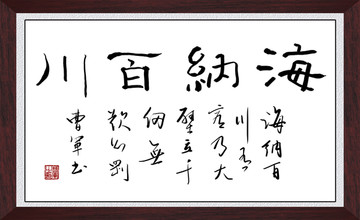 海納百川
海納百
川有
容乃大
壁立千
仞無
欲則剛
曹軍书